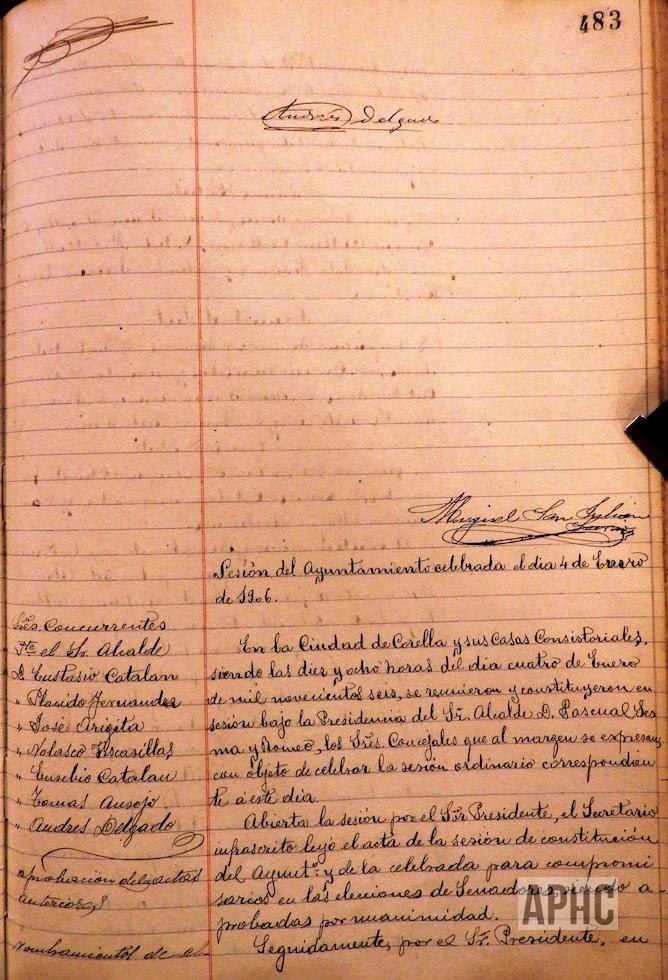 483
Andrés Delgado
Miguel San Julian
Sesión del Ayuntamiento celebrada el dia 4 de Enero
de 1906.
Sres. Concurrentes
Pte el Sr. Alcalde
D. Eustasio Catalan
" Placido Fernandez
" José Arigita
" Nolasco Viscasillas
" Eusebio Catalan
" Tomas Ausejo
" Andres Delgado
aprobacion de las actas
anteriores
nombramientos de al-
En la Ciudad de Corella y sus Casas Consistoriales,
siendo las diez y ocho horas del dia cuatro de Enero
de mil novecientos seis, se reunieron y constituyeron en
sesión bajo la Presidencia del Sr. Alcalde D. Pascual Ses
ma y Romeo, los Sres. Concejales que al margen se expresan,
con objeto de celebrar la sesión ordinario correspondien
te á este dia.
Abierta la sesión por el Sr. Presidente, el Secretario
infrascrito leyó el acta de la sesión de constitución
del Ayuntº. y de la celebrada para compromi
sarios en las elecciones de Senadores, siendo a-
probadas por unanimidad.
Seguidamente, por el Sr. Presidente, en
APHC